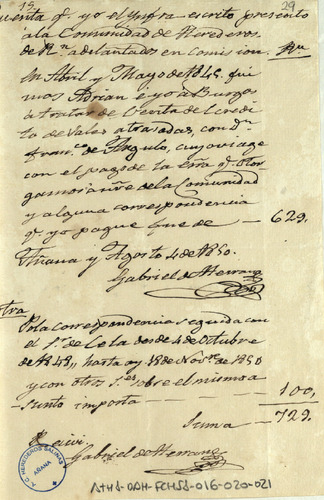 19
29
Cuenta qe. yo el Ynfraescrito presento
a la Comunidad de Herederos
de Rn. adelantados en comision. Rn
En Abril y Mayo de 1845 fui
mos Adrian e yo a Burgos
a tratar de Venta del credi
to de Vales atrasadas, con Dn.
Franco. de Angulo, cuyo viage
con el pago de la Esna. qe. otor
gamos a nre. de la Comunidad
y alguna correspondencia
qe. yo pague fue de — 629.
Añana y Agosto 4 de 1850.
Gabriel de Herran
Otra
Por la correspondencia seguida con
el Sr. de Cola desde 4 de Octubre
de 1849, hasta 18 de Novre. de 1850
y con otros Ses. sobre el mismo a
sunto importa — 100,
Suma — 729.
Recivi
Gabriel de Herran
R. C. HEREDEROS SALINAS
AÑANA
ATHA-DAH-FCHSA-016-020-021